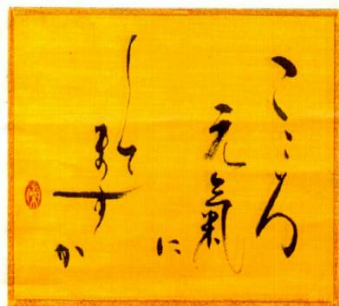 こころ
元氣に
してますか